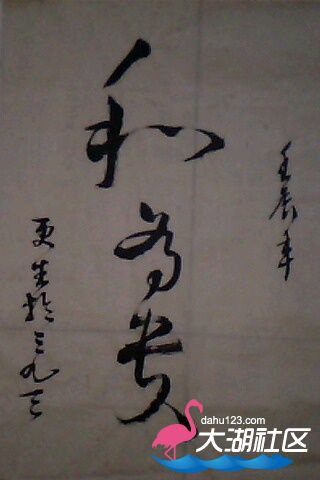 壬辰年
和為贵
更生於三九三
dahu123.com
大湖社区